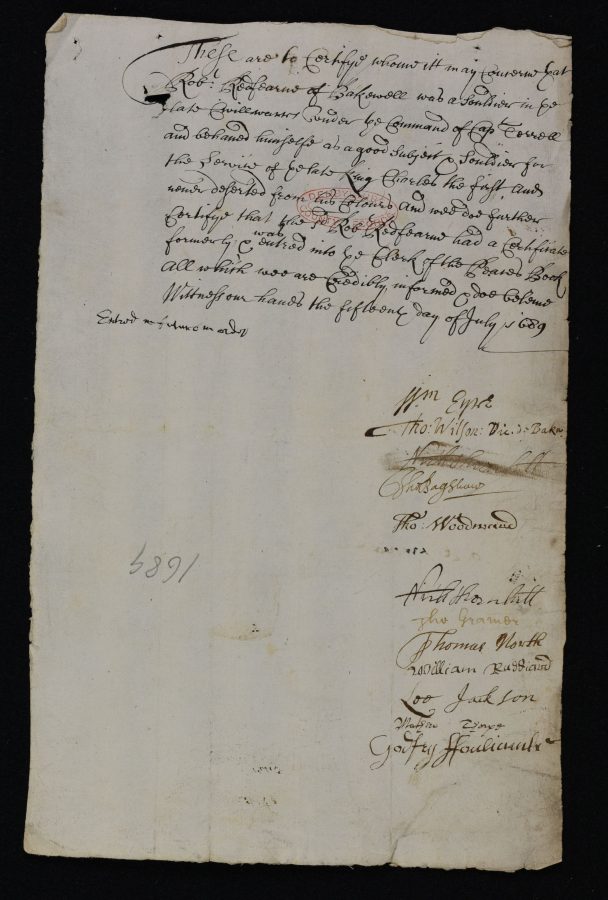 These are to Certifye whome itt may Concerne yat
Rob: Redfearne of Bakewell was a Souldier in ye
late Civillwarrs under ye Command of Cap: Terrell
and behaved himselfe as a good Subject & Souldier for
the Service of ye late King Charles the first, and
never deserted from his Colours And wee doe further
Certifye that the sd Rob: Redfearne had a Certificate
formerly & was entred into ye Clerk of the Peaces Book
All which wee are Credibly informed & doe beleive
Wittness our hands the fifteenth day of July 1689
Entred
Wm Eyre
Tho: Wilson: Vic: de Bakew
Tho Bagshaw
Tho: Woodward
1689
Tho Gramer
Thomas North
William Ruddiard
Leo Jackson
Godfry ffouliambe